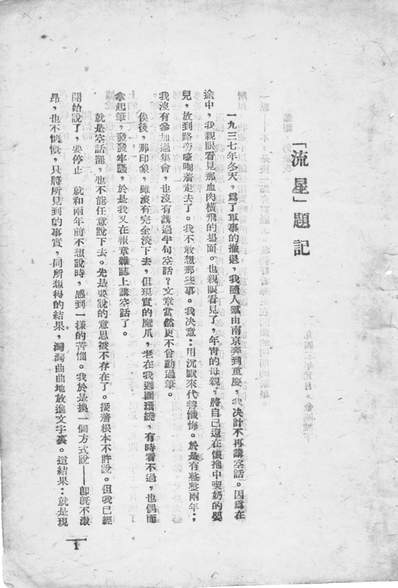 「流星」題記
一九三七年冬天，爲了軍事的撤退，我隨人羣由南京奔到重慶，我决計不再講空話。因爲在
途中，我親眼看見那血肉橫飛的場面。也親眼看見了，年靑的母親，將自己還在懷抱中吃奶的嬰
兒，放到路旁嚎啕着走去了。我不敢想那些事。我决意：用沉默來代替懺悔。於是有整整兩年：
我沒有參加過集會，也沒有講過半句空話？文章當然更不曾動過筆。
後後，那印象，雖沒有完全淡下去，但現實的魔爪，老在我週圍環繞，有時看不過，也偶而
拿起筆，發發牢騷，於是我又在報章雜誌上講空話了。
就是空話罷，也不能任意說下去。先是要說的意思被不存在了。接着根本不許說。但我已經
開始說了，要停止　就和兩年前不想說時，感到一樣的苦惱。我於是換一個方式說——卽旣不激
昂，也不慷慨，只將所見到的事實，同所想得的結果，灣灣曲曲地放進文字裏。這結果：就是現
1